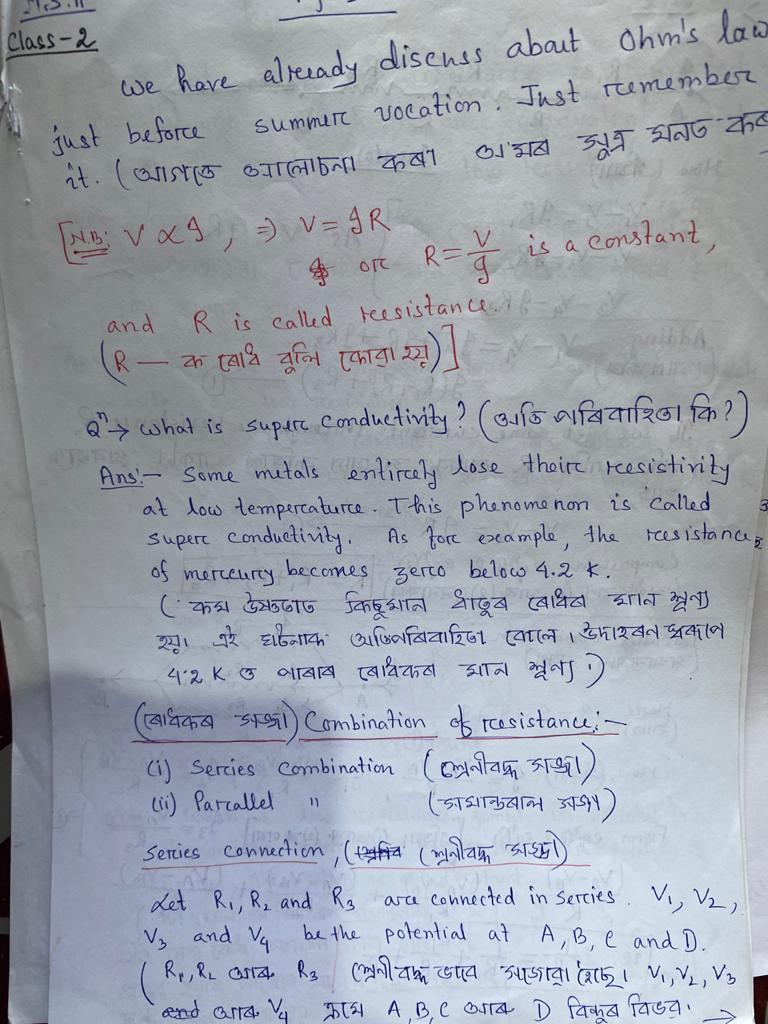 Class-2
We have already discuss about Ohm's law
just before summer vocation. Just remember
it. (আগতে আলোচনা কৰা ওমৰ সূত্ৰ মনত কৰ
[N.B: V ∝ I, ⇒ V = IR
or R = V/I is a constant,
and R is called resistance.
(R — ক ৰোধ বুলি কোৱা হয়)]
Qⁿ → What is super conductivity? (অতি পৰিবাহিতা কি?)
Ans:- Some metals entirely lose their resistivity
at low temperature. This phenomenon is called
super conductivity. As for example, the resistance
of mercury becomes zero below 4.2 K.
(কম উষ্ণতাত কিছুমান ধাতুৰ ৰোধৰ মান শূন্য
হয়। এই ঘটনাক অতিপৰিবাহিতা বোলে। উদাহৰন স্বৰূপে
4.2 K ত পাৰাৰ ৰোধকৰ মান শূন্য।)
(ৰোধকৰ সজ্জা) Combination of resistance:-
(i) Series combination (শ্ৰেনীবদ্ধ সজ্জা)
(ii) Parallel " (সমান্তৰাল সজ্জা)
Series connection, (শ্ৰেনীবদ্ধ সজ্জা)
Let R₁, R₂ and R₃ are connected in series. V₁, V₂,
V₃ and V₄ be the potential at A, B, C and D.
(R₁, R₂ আৰু R₃ শ্ৰেনীবদ্ধ ভাবে সজোৱা হৈছে। V₁, V₂, V₃
আৰু V₄ ক্ৰমে A, B, C আৰু D বিন্দুৰ বিভৱ। →